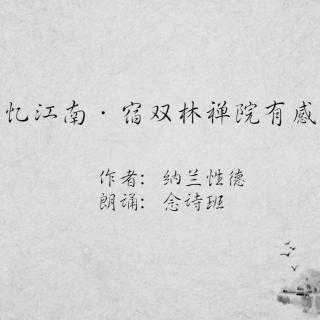 忆江南·宿双林禅院有感
作者：纳兰性德
朗诵：念诗班